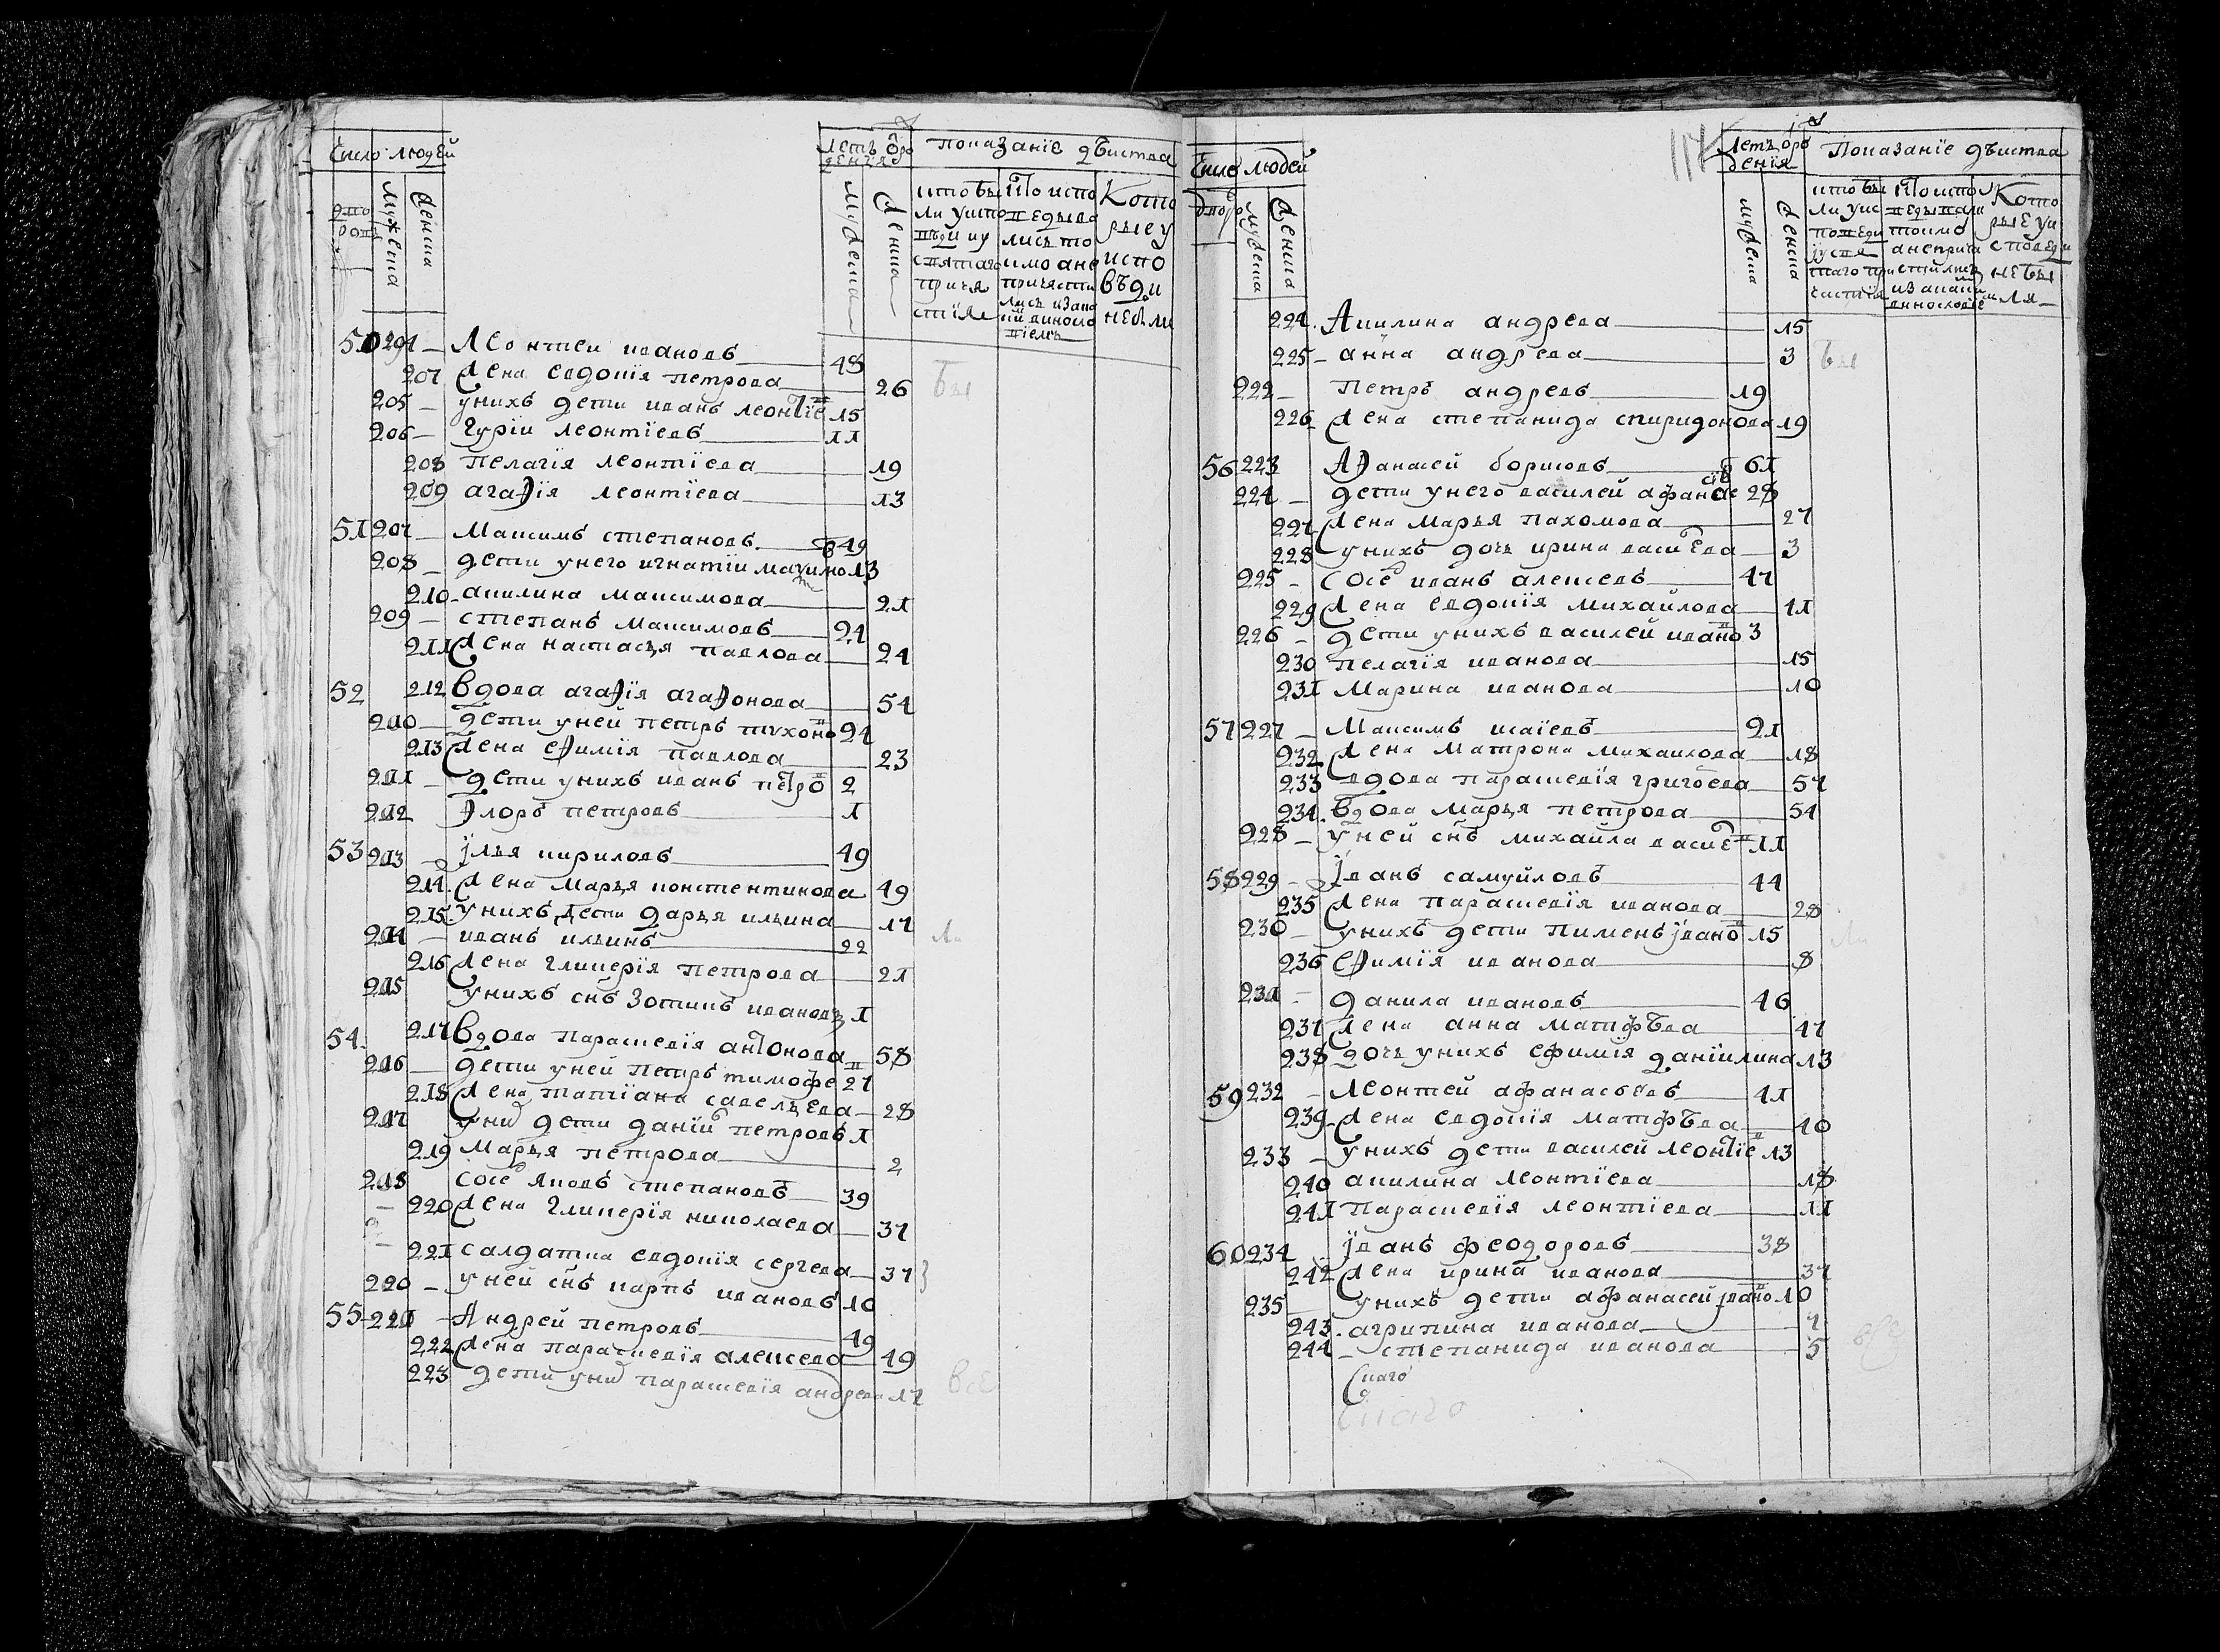 Число людей
Летъ ѿ рождения
Показанїе дѣиства
дворовъ
мужеска
женска
мужеска
женска
что бы
ли у испо
вѣди и у
святаго
прича
стїя
Кото
рые у
испо
вѣди
не бы
50 204 — Леонтеи ивановъ 48
207 жена евдокїя петрова 26
205 — у нихъ дети иванъ леонтїе 15
206 — Гурїи леонтїевъ 11
208 пелагїя леонтїева 19
209 агафїя леонтїева 13
51 207 — Максимъ степановъ 49
208 — дети у него игнатїи максимо 13
210 акилина максимова 21
209 — степанъ максимовъ 24
211 жена настасья павлова 24
52 212 вдова агафїя агафонова 54
210 — дети у ней петръ тихоно 24
213 жена ефимїя павлова 23
211 — дети у нихъ иванъ петро 2
212 флоръ петровъ 1
53 213 — Їлья кириловъ 49
214 жена марья констентинова 49
215 у нихъ дети дарья ильина 17
214 — иванъ ильинъ 22
216 жена гликерїя петрова 21
215 у нихъ снъ Зотикъ ивановъ 1
54 217 вдова параскевїя антонова 58
216 — дети у ней петръ тимофе 27
218 жена татїана савельева 28
217 у ни дети данїи петровъ 1
219 Марья петрова 2
218 сосе яковъ степановъ 39
220 жена гликерїя николаева 37
221 салдатка евдокїя сергева 37
220 — у ней снъ карпъ ивановъ 10
55 221 — Андрей петровъ 49
222 жена параскевїя алексева 49
223 дети у ни параскевїя андрева 17
Бы
Ли
Все
117
Число людей
Летъ ѿ рождения
Показанїе дѣиства
дворо
мужеска
женска
мужеска
женска
Кото
рые у и
споведи
не бы
ли
224 Акилина андрева 15
225 — анна андрева 3
222 — Петръ андревъ 19
226 жена степанида спиридонова 19
56 223 Афанасей борисовъ 61
224 — дети у него василей афанас 28
227 жена марья пахомова 27
228 у нихъ дочь ирина васиева 3
225 — сосе иванъ алексевъ 47
229 жена евдокїя михайлова 41
226 — дети у нихъ василей ивано 3
230 пелагїя иванова 15
231 Марина иванова 10
57 227 — Максимъ исаїевъ 21
232 жена матрона михаилова 18
233 вдова параскевїя григоева 57
234 вдова марья петрова 54
228 — у ней снъ михайла васие 11
58 229 — Їванъ самуйловъ 44
235 жена параскевїя иванова 28
230 — у нихъ дети пименъ їванo 15
236 ефимїя иванова 8
231 — данила ивановъ 46
237 жена анна матфѣва 47
238 дочь у нихъ ефимїя данїилина 13
59 232 — Леонтей афанасьевъ 41
239 жена евдокїя матфѣва 40
233 — у нихъ дети василей леонтїе 13
240 акилина леонтїева 18
241 Параскевїя леонтїева 11
60 234 — Їванъ феодоровъ 38
242 жена ирина иванова 37
235 — у нихъ дети афанасей їванo 10
243 агрипина иванова 7
244 — степанида иванова 5
бы
Ли
все